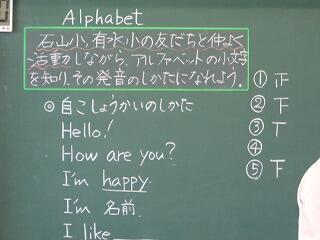 Alphabet
石山小，有水小の友だちと仲よく
活動しながら、アルファベットの小文字
を知り、その発音のしかたになれよう。
◎ 自こしょうかいのしかた
Hello!
How are you?
I'm happy.
I'm 名前.
I like
① 正
② 下
③ T
④
⑤ 下